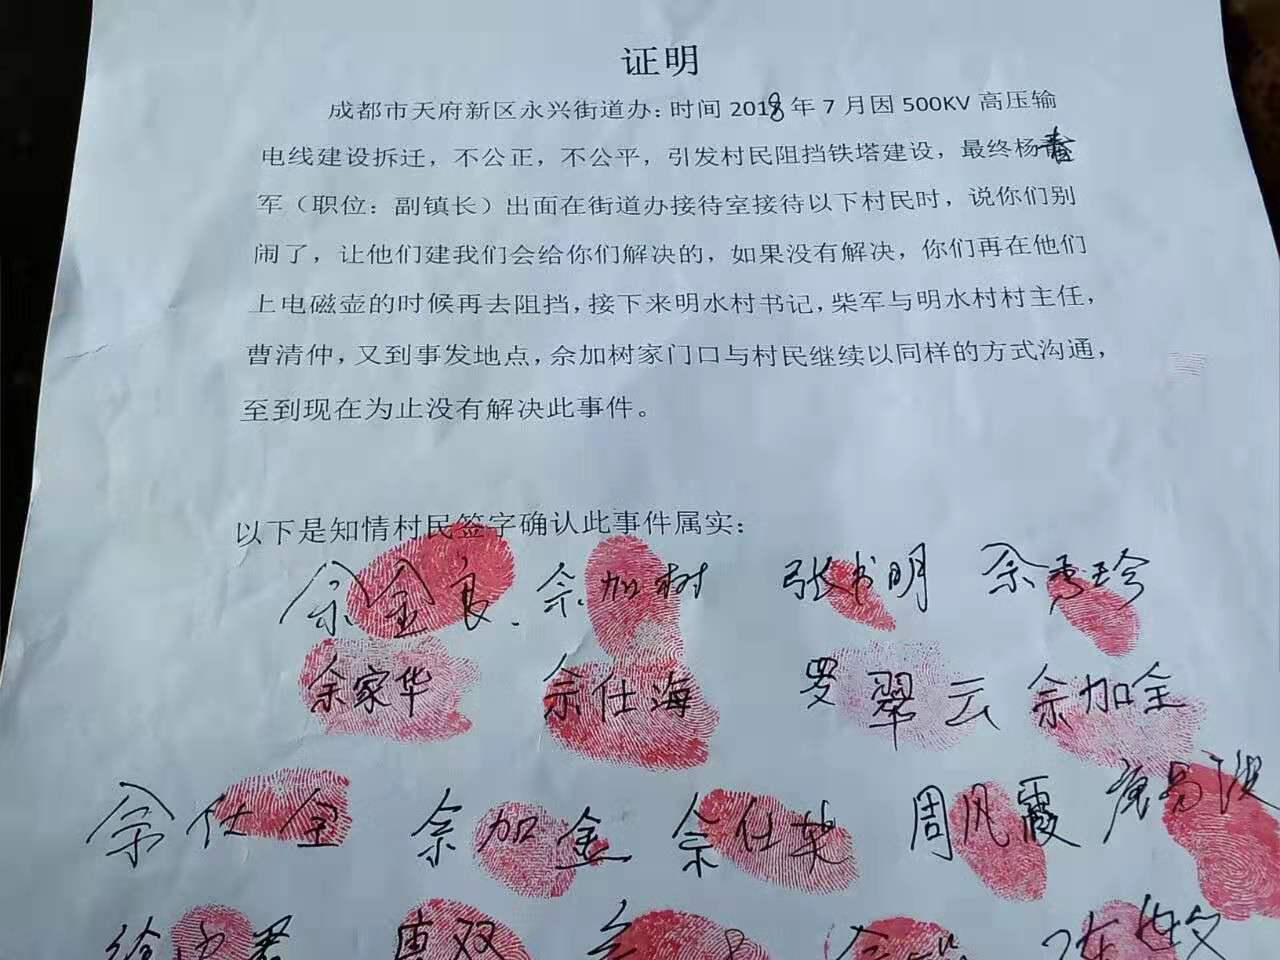 证明
成都市天府新区永兴街道办：时间 2018 年 7 月因 500KV 高压输
电线建设拆迁，不公正，不公平，引发村民阻挡铁塔建设，最终杨
军（职位：副镇长）出面在街道办接待室接待以下村民时，说你们别
闹了，让他们建我们会给你们解决的，如果没有解决，你们再在他们
上电磁壶的时候再去阻挡，接下来明水村书记，柴军与明水村村主任，
曹清仲，又到事发地点，佘加树家门口与村民继续以同样的方式沟通，
至到现在为止没有解决此事件。
以下是知情村民签字确认此事件属实：
佘金良 佘加树 张书明 佘秀珍
佘家华 佘仕海 罗翠云 佘加全
佘仕全 佘加金 佘仕英 周凤霞